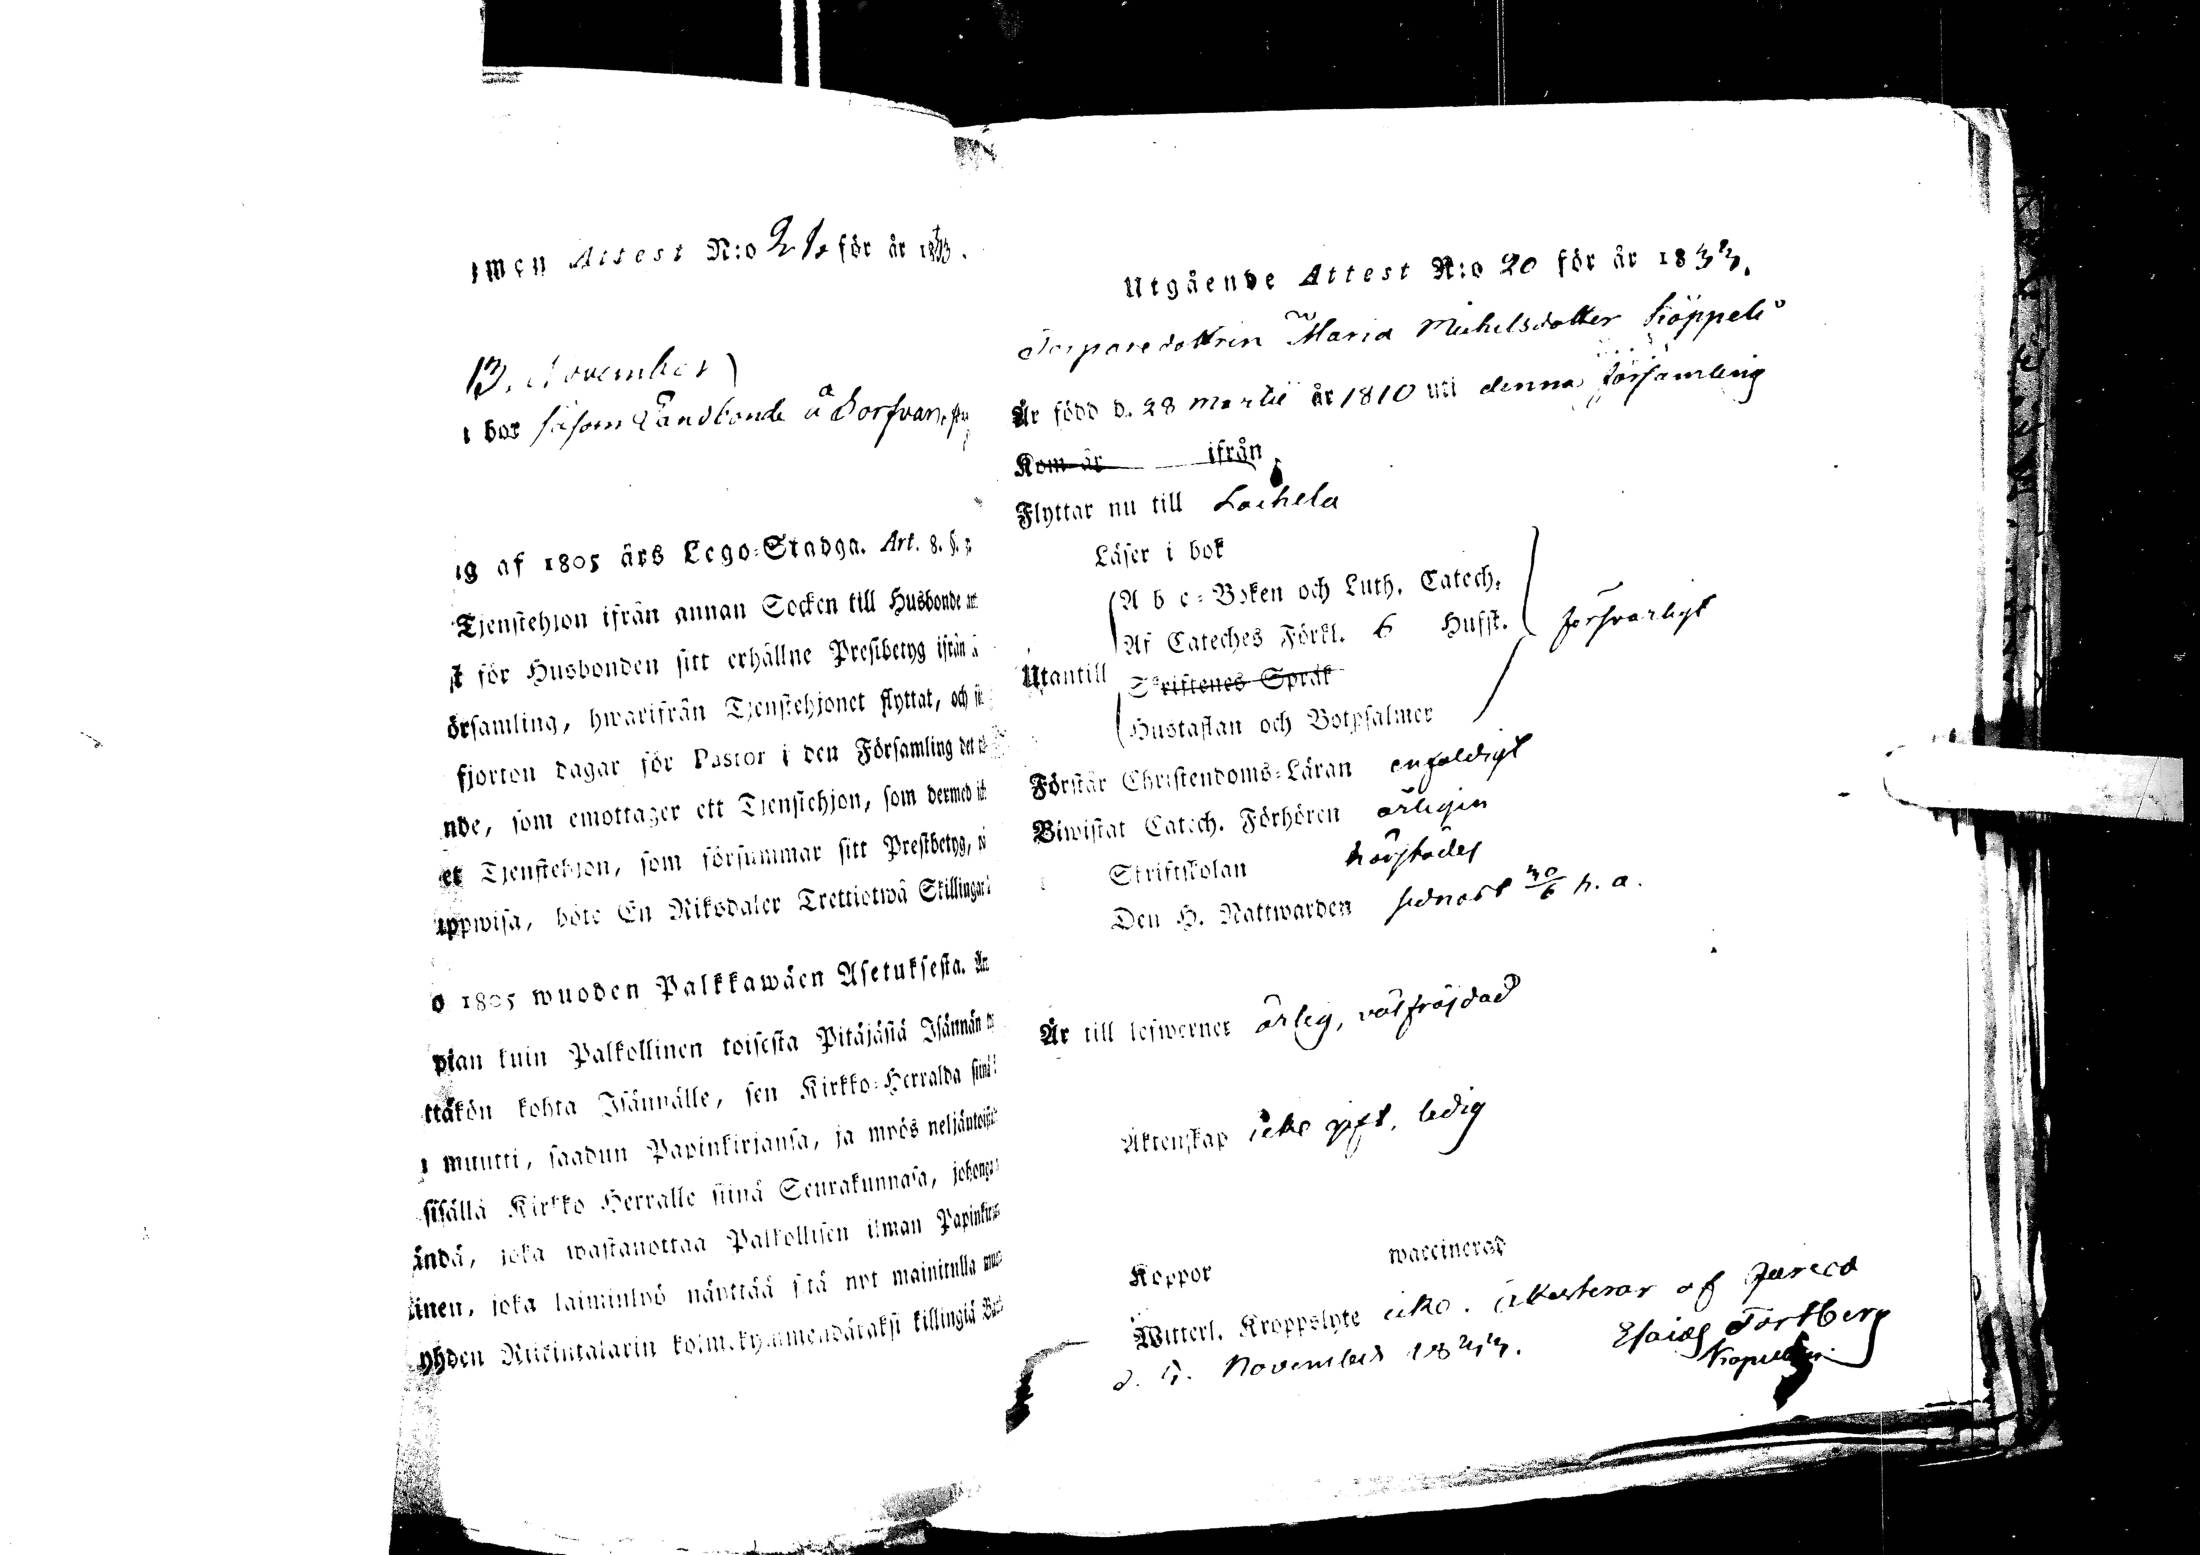 Attest N:o 21 för år 1833.
13. November
bor såsom Landbonde å
af 1805 års Lego-Stadga. Art. 8. §.
Tjenstehjon ifrån annan Socken till Husbonde
för Husbonden sitt erhållne Prestbetyg ifrån
örsamling, hwarifrån Tjenstehjonet flyttat, och
fjorton dagar för Pastor i den Församling det
nde, som emottager ett Tjenstehjon, som dermed
et Tjenstehjon, som försummar sitt Prestbetyg,
uppwisa, böte En Riksdaler Trettiotwå Skillingar
o 1805 wuoden Palkkawäen Asetuksesta.
pian kuin Palkollinen toisesta Pitäjästä Isännän
ttäkön kohta Isännälle, sen Kirkko-Herralda siinä
muutti, saadun Papinkirjansa, ja myös neljäntoista
sisällä Kirkko Herralle siinä Seurakunnasa, johonga
ändä, joka wastanottaa Palkollisen ilman
linen, joka laiminlyö näyttää sitä nyt mainitulla
yhden Riikintalarin kolmekymmendäkaksi killingiä
Utgående Attest N:o 20 för år 1833.
Maria Michelsdotter
Är född d. 28 Martii år 1810 uti denna församling
Kom år ifrån
Flyttar nu till Laihela
Läser i bok
A b c-Boken och Luth. Catech.
Af Cateches Förkl. 6 Hufst. försvarligt
Utantill
Skriftenes Språk
Hustaflan och Botpsalmer
Förstår Christendoms-Läran enfaldigt
Biwistat Catech. Förhören årligen
Skriftskolan
Den H. Nattwarden sednast 30/6 h. a.
Är till lefwernet ärlig, välfräjdad
Äktenskap icke gift, ledig
Koppor waccinerad
Witterl. Kroppslyte icke. attesterar af
d. November 1833. Esaias